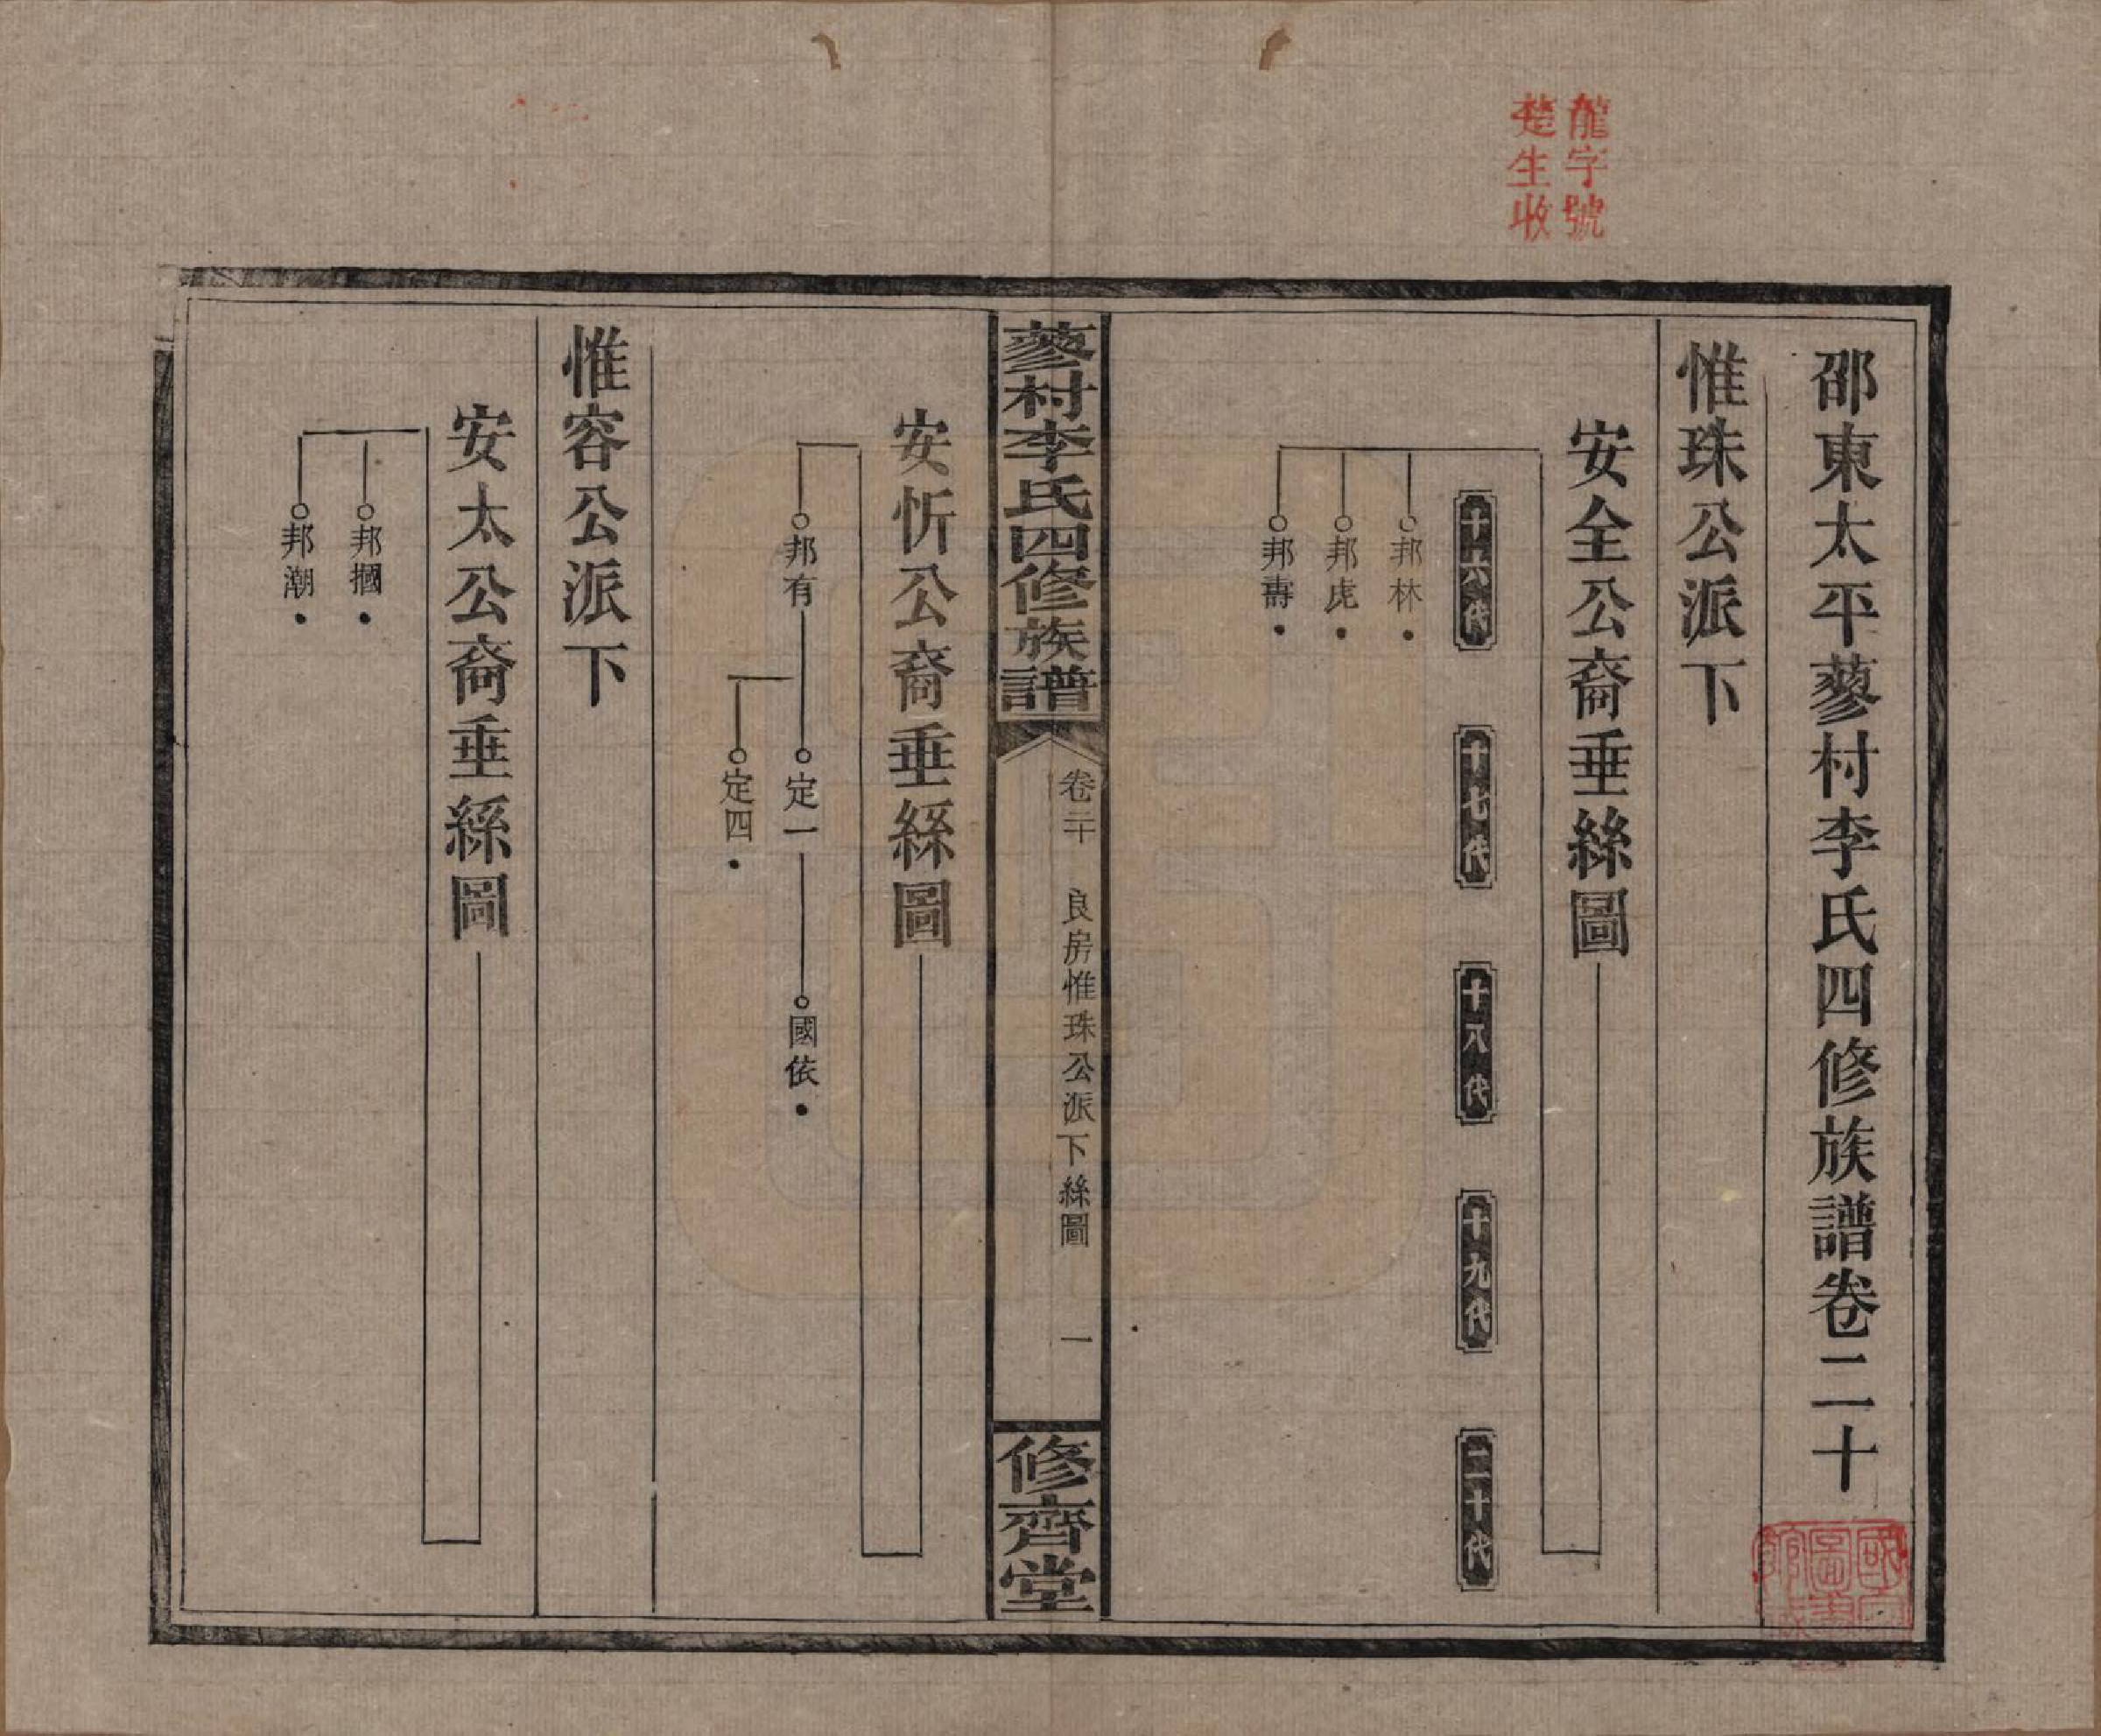 龍字號
楚生收
邵東太平蓼村李氏四修族譜卷二十
惟珠公派下
安全公裔垂絲圖
十六代
十七代
十八代
十九代
二十代
邦林
邦虎
邦壽
蓼村李氏四修族譜
卷二十
良房惟珠公派下絲圖
一
修齊堂
安忻公裔垂絲圖
邦有
定一
國依
定四
惟容公派下
安太公裔垂絲圖
邦摑
邦潮